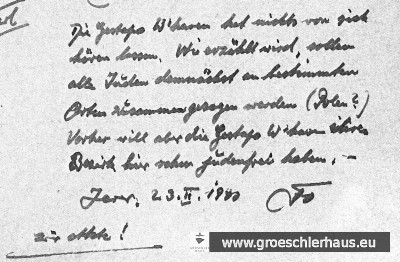 Die Gestapo W'haven hat nichts von sich
hören lassen. Wie erzählt wird, sollen
alle Juden demnächst an bestimmten
Orten zusammengezogen werden (Polen?)
Vorher will aber die Gestapo W'haven ihren
Bezirk hier schon judenfrei haben. —
Jever, 23. II. 1940
zu Akte!
www.groeschlerhaus.eu